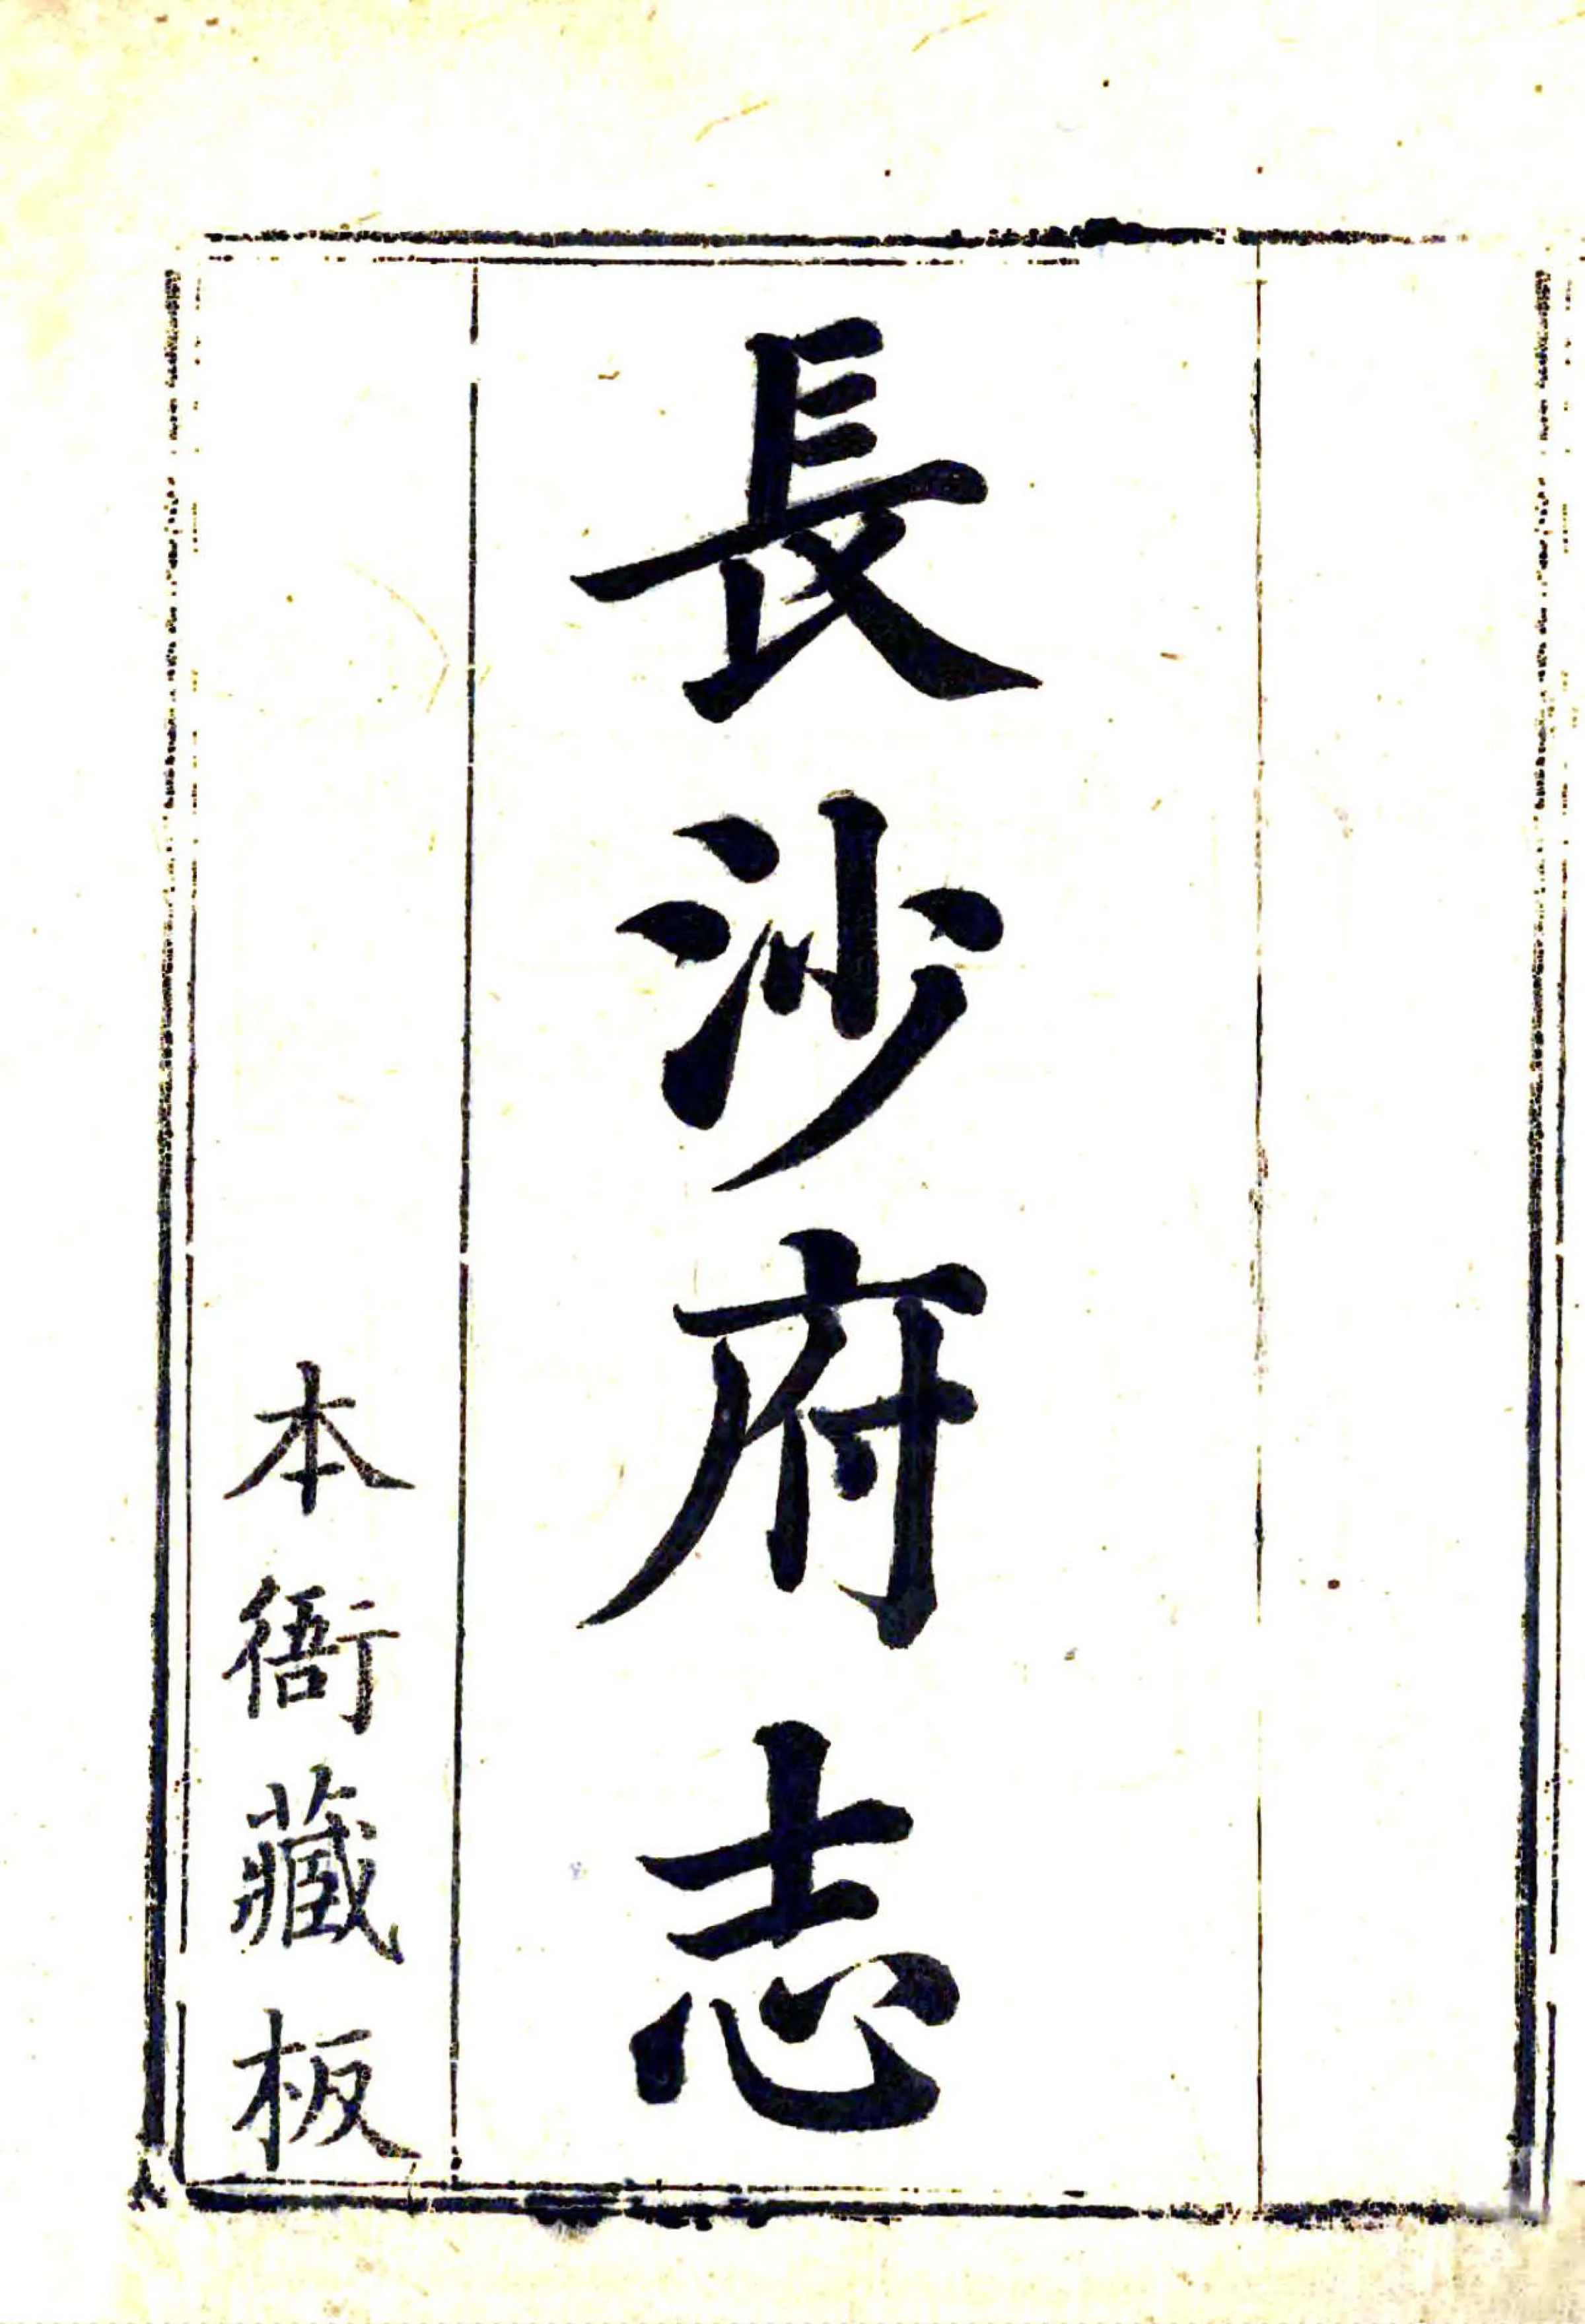 長沙府志
本衙藏板